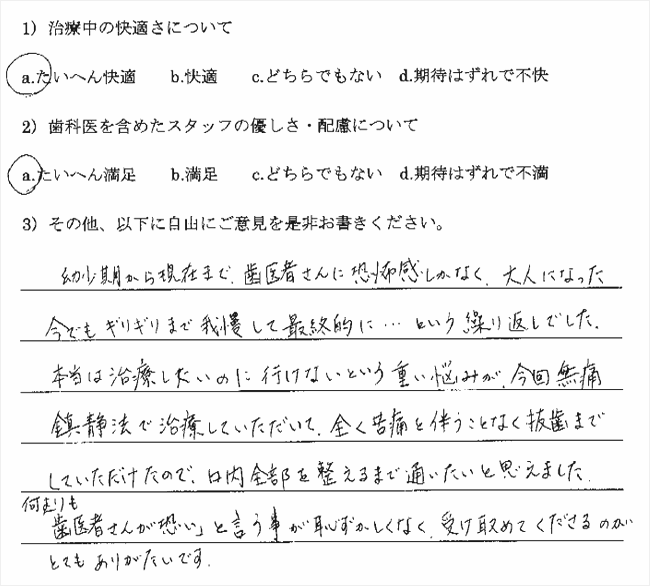 1）治療中の快適さについて
a.たいへん快適　b.快適　c.どちらでもない　d.期待はずれで不快
2）歯科医を含めたスタッフの優しさ・配慮について
a.たいへん満足　b.満足　c.どちらでもない　d.期待はずれで不満
3）その他、以下に自由にご意見を是非お書きください。
幼少期から現在まで、歯医者さんに恐怖感しかなく、大人になった
今でもギリギリまで我慢して最終的に…という繰り返しでした。
本当は治療したいのに行けないという重い悩みが、今回無痛
鎮静法で治療していただいて、全く苦痛を伴うことなく抜歯まで
していただけたので、口内全部を整えるまで通いたいと思えました。
何よりも
歯医者さんが恐い」と言う事が恥ずかしくなく、受け取めてくださるのが
とてもありがたいです。